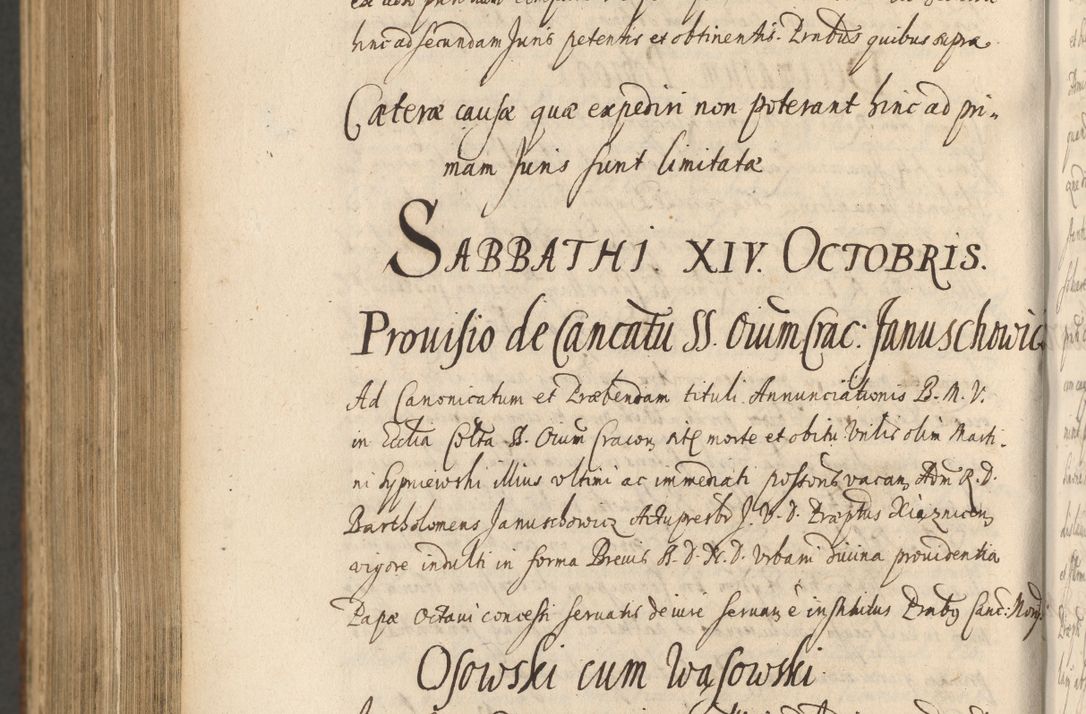 hinc ad secundam Juris petentis et obtinentis. Pntibus quibus supra
Cæteræ causæ quæ expediri non poterant hinc ad pri-
mam Juris sunt limitatæ
SABBATHI. XIV. OCTOBRIS.
Provisio de Cancatu SS. Oium Crac: Januschowic
Ad Canonicatum et Præbendam tituli Annunciationis B. M. V.
in Ecclia Colta SS. Oium Cracon, sitq morte et obitu Vnlis olim Marti-
ni Sypniewski illius ultimi ac immediati possoris vacan, Adm R. D.
Bartholomeus Januschowicz Actu presbr J. V. D. Præptus Xiąznicen,
vigore indulti in forma Brevis S. D. N. D. Urbani divina providentia
Papæ Octavi concessi servatis de iure servan, e institutus Pntibus Sanc: Mor
Osowski cum Wąsowski